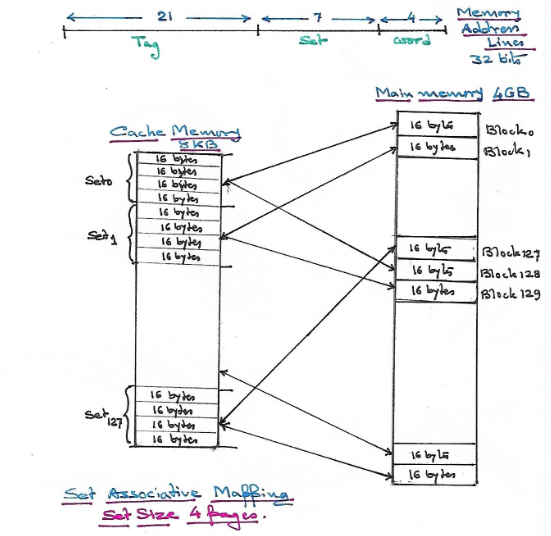 21 7 4
Tag Set Word
Memory
Address
Lines
32 bits
Main memory 4GB
Cache Memory
8KB
16 bytes
16 bytes
16 bytes
16 bytes
Set0
16 bytes
16 bytes
16 bytes
16 bytes
Set1
16 bytes
16 bytes
16 bytes
16 bytes
Set127
16 byts Block0
16 bytes Block1
16 byts Block127
16 byts Block128
16 bytes Block129
16 byts
16 bytes
Set Associative Mapping
Set Size 4 Pages.